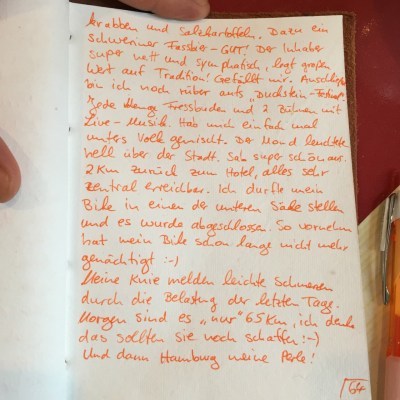 Krabben und Salzkartoffeln. Dazu ein
Schweriner Fassbier - GUT! Der Inhaber
super nett und symphatisch, legt großen
Wert auf Tradition! Gefällt mir. Anschließend
bin ich noch rüber aufs „Duckstein-Festival".
Jede Menge Fressbuden und 2 Bühnen mit
Live-Musik. Hab mich einfach mal
unters Volk gemischt. Der Mond leuchtete
hell über der Stadt. Sah super schön aus.
2 Km zurück zum Hotel, alles sehr
zentral erreichbar. Ich durfte mein
Bike in einen der unteren Säle stellen
und es wurde abgeschlossen. So vornehm
hat mein Bike schon lange nicht mehr
genächtigt :-)
Meine Knie melden leichte Schmerzen
durch die Belastung der letzten Tage.
Morgen sind es „nur" 65 Km, ich denke
das sollten sie noch schaffen :-)
Und dann Hamburg meine Perle!
64